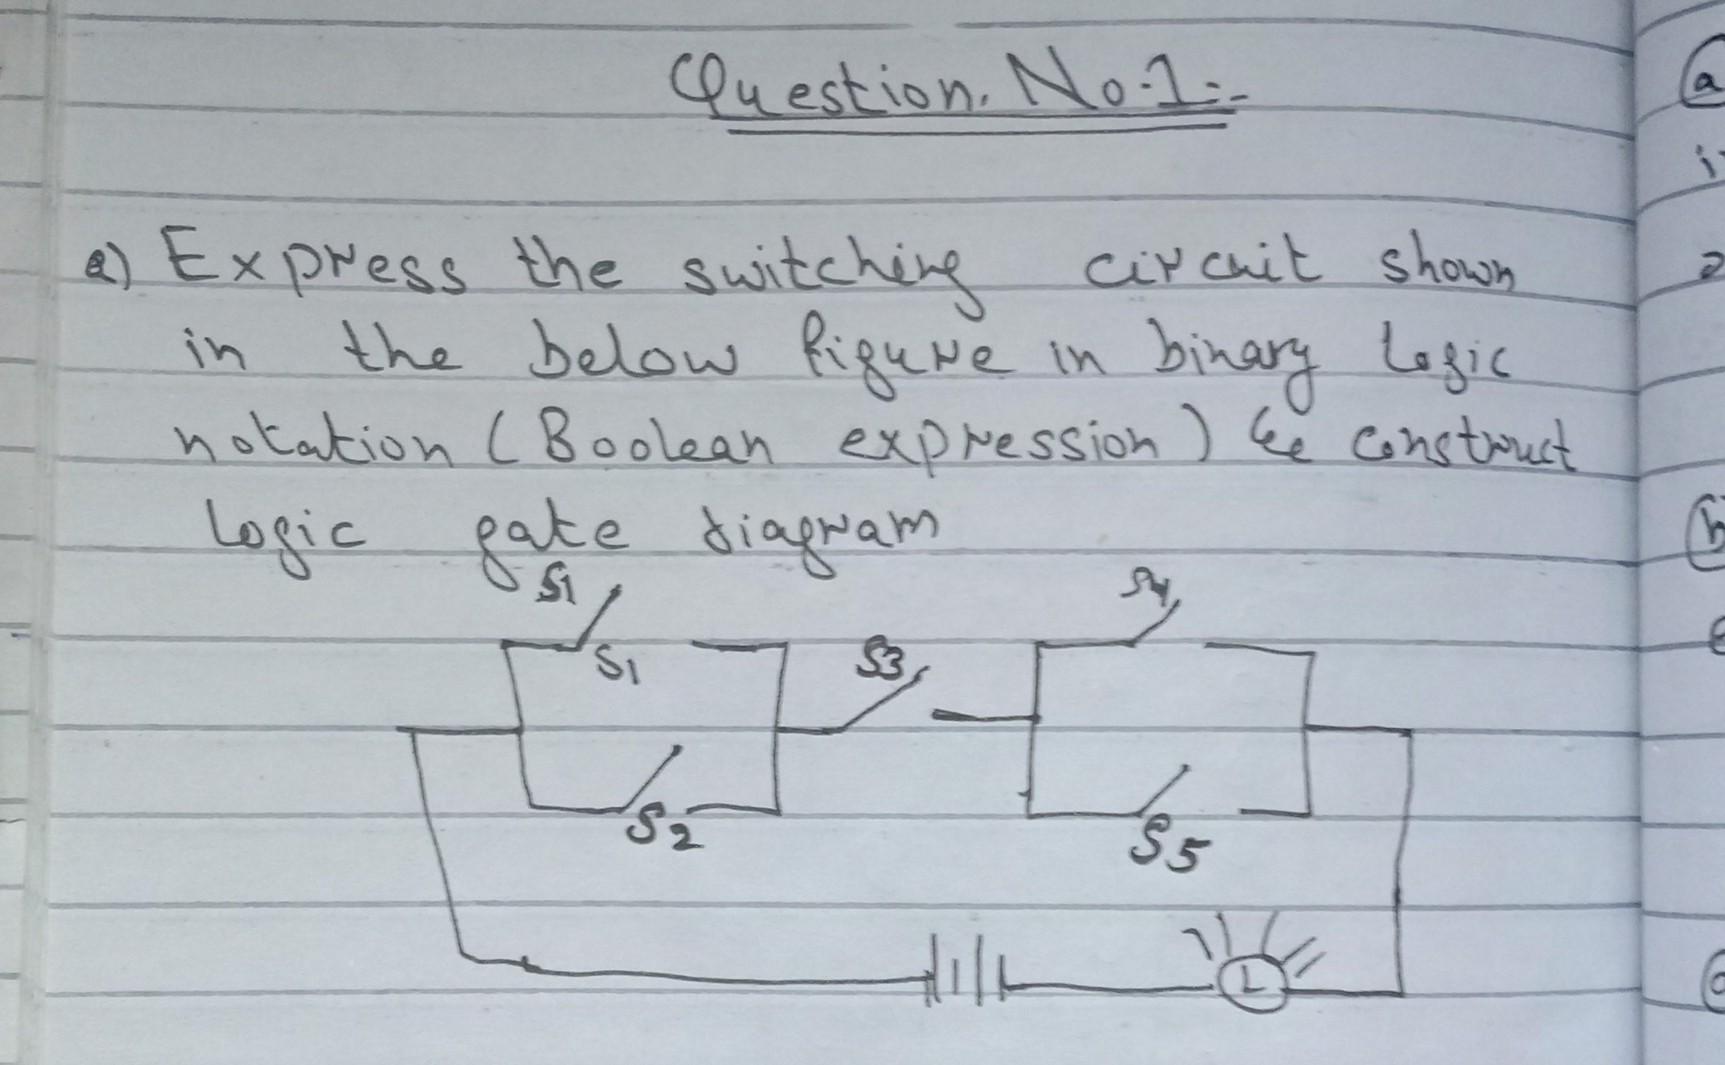 Question. No:1:-
a) Express the switching circuit shown
in the below figure in binary logic
notation (Boolean expression) & construct
logic gate diagram
S1
S4
S1
S3
S2
S5
L
a
i
2
b